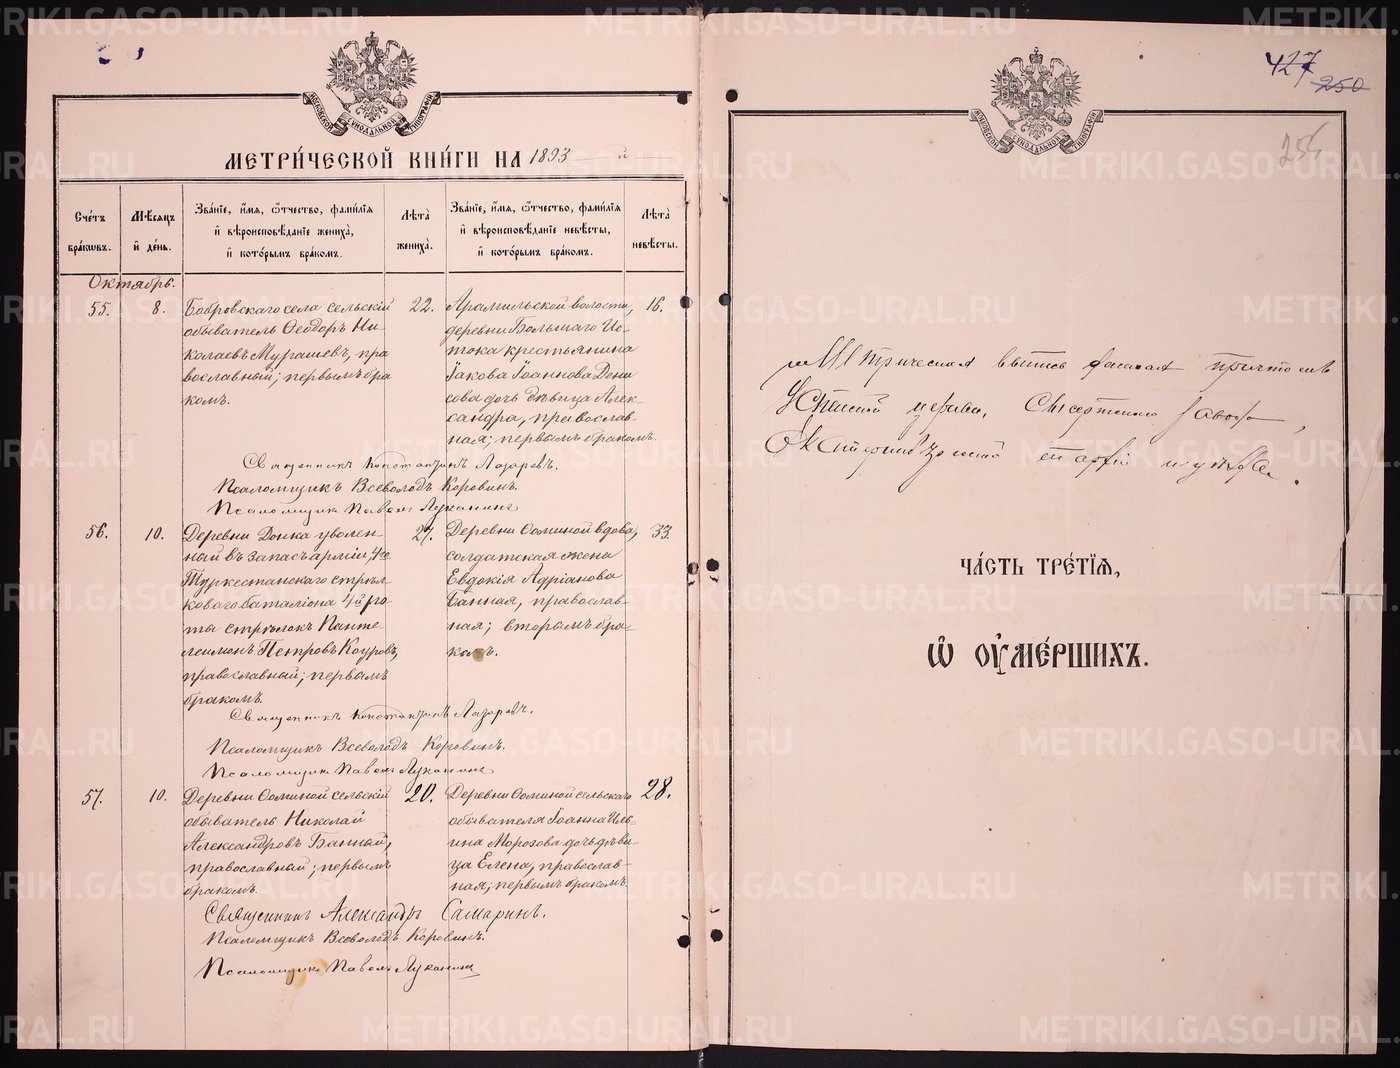 МЕТРИ́ЧЕСКОЙ КНИ́ГИ НА 1893 й
Сче́тъ бра́ковъ.
Мѣ́сяцъ и҆ де́нь.
Зва́нїе, и҆́мя, ѻ҆́тчество, фами́лїя и҆ вѣроисповѣ́данїе жениха̀, и҆ кото́рымъ бра́комъ.
Лѣ́та жениха̀.
Зва́нїе, и҆́мя, ѻ҆́тчество, фами́лїя и҆ вѣроисповѣ́данїе невѣ́сты, и҆ кото́рымъ бра́комъ.
Лѣ́та невѣ́сты.
Октябрь.
55.
8.
Бобровскаго села сельскій
обыватель Ѳеодоръ Ни-
колаевъ Мурашевъ, пра
вославный; первымъ бра
комъ.
22.
Арамильской волости,
деревни Большаго Ис-
тока крестьянина
Іакова Іоаннова Дени
сова дочь дѣвица Алек-
сандра, православ-
ная; первымъ бракомъ.
16.
Священникъ Константинъ Лазаревъ.
Псаломщикъ Всеволодъ Коровинъ.
Псаломщик Павелъ Луканинъ
56.
10.
Деревни уволен-
ный въ запасъ арміи, 4го
Туркестанскаго стрѣл-
коваго баталіона 4й ро-
ты стрѣлокъ Панте
леимонъ Петровъ Коуровъ,
православный; первымъ
бракомъ.
27.
Деревни Ѳоминой вдова,
солдатская жена
Евдокія Адріанова
Банная, православ-
ная; вторымъ бра-
комъ.
33.
Священникъ Константинъ Лазаревъ.
Псаломщикъ Всеволодъ Коровинъ.
Псаломщик Павелъ Луканинъ
57.
10.
Деревни Ѳоминой сельскій
обыватель Николай
Александровъ Банный,
православный; первымъ
бракомъ.
20.
Деревни Ѳоминой сельскаго
обывателя Іоанна Иль-
ина Морозова дочь дѣви-
ца Елена, православ-
ная; первымъ бракомъ
28.
Священникъ Александръ Самаринъ.
Псаломщикъ Всеволодъ Коровинъ.
Псаломщик Павелъ Луканинъ
427
250
254
Метрическая выпись данная причтомъ
Успенской церкви, Сысертскаго завода,
Екатеринбургской епархіи и уѣзда.
ЧА́СТЬ ТРЕ́ТЇѦ,
Ѽ ОУ҆МЕ́РШИХЪ.
METRIKI.GASO-URAL.RU